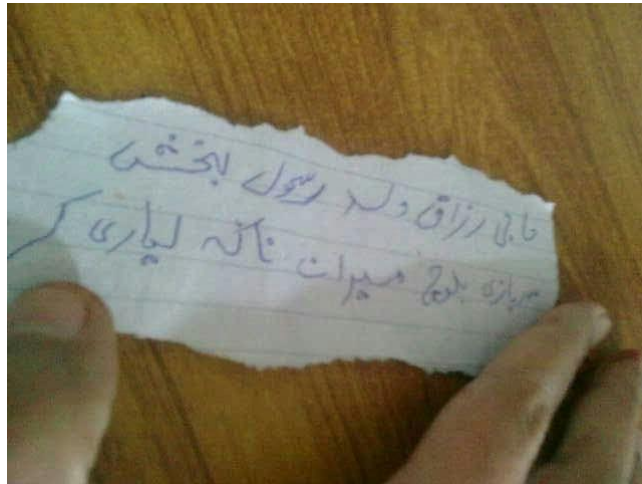 حاجی رزاق ولد رسول بخش
سربازی بلوچ میران ناکہ لیاری کر